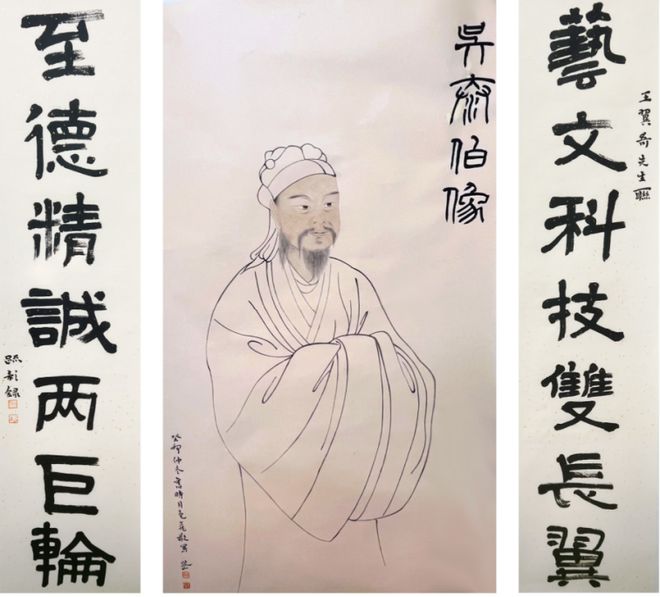 王翼奇先生聯
藝文科技雙長翼
吳泰伯像
癸卯仲冬
至德精誠两巨輪
疏影録